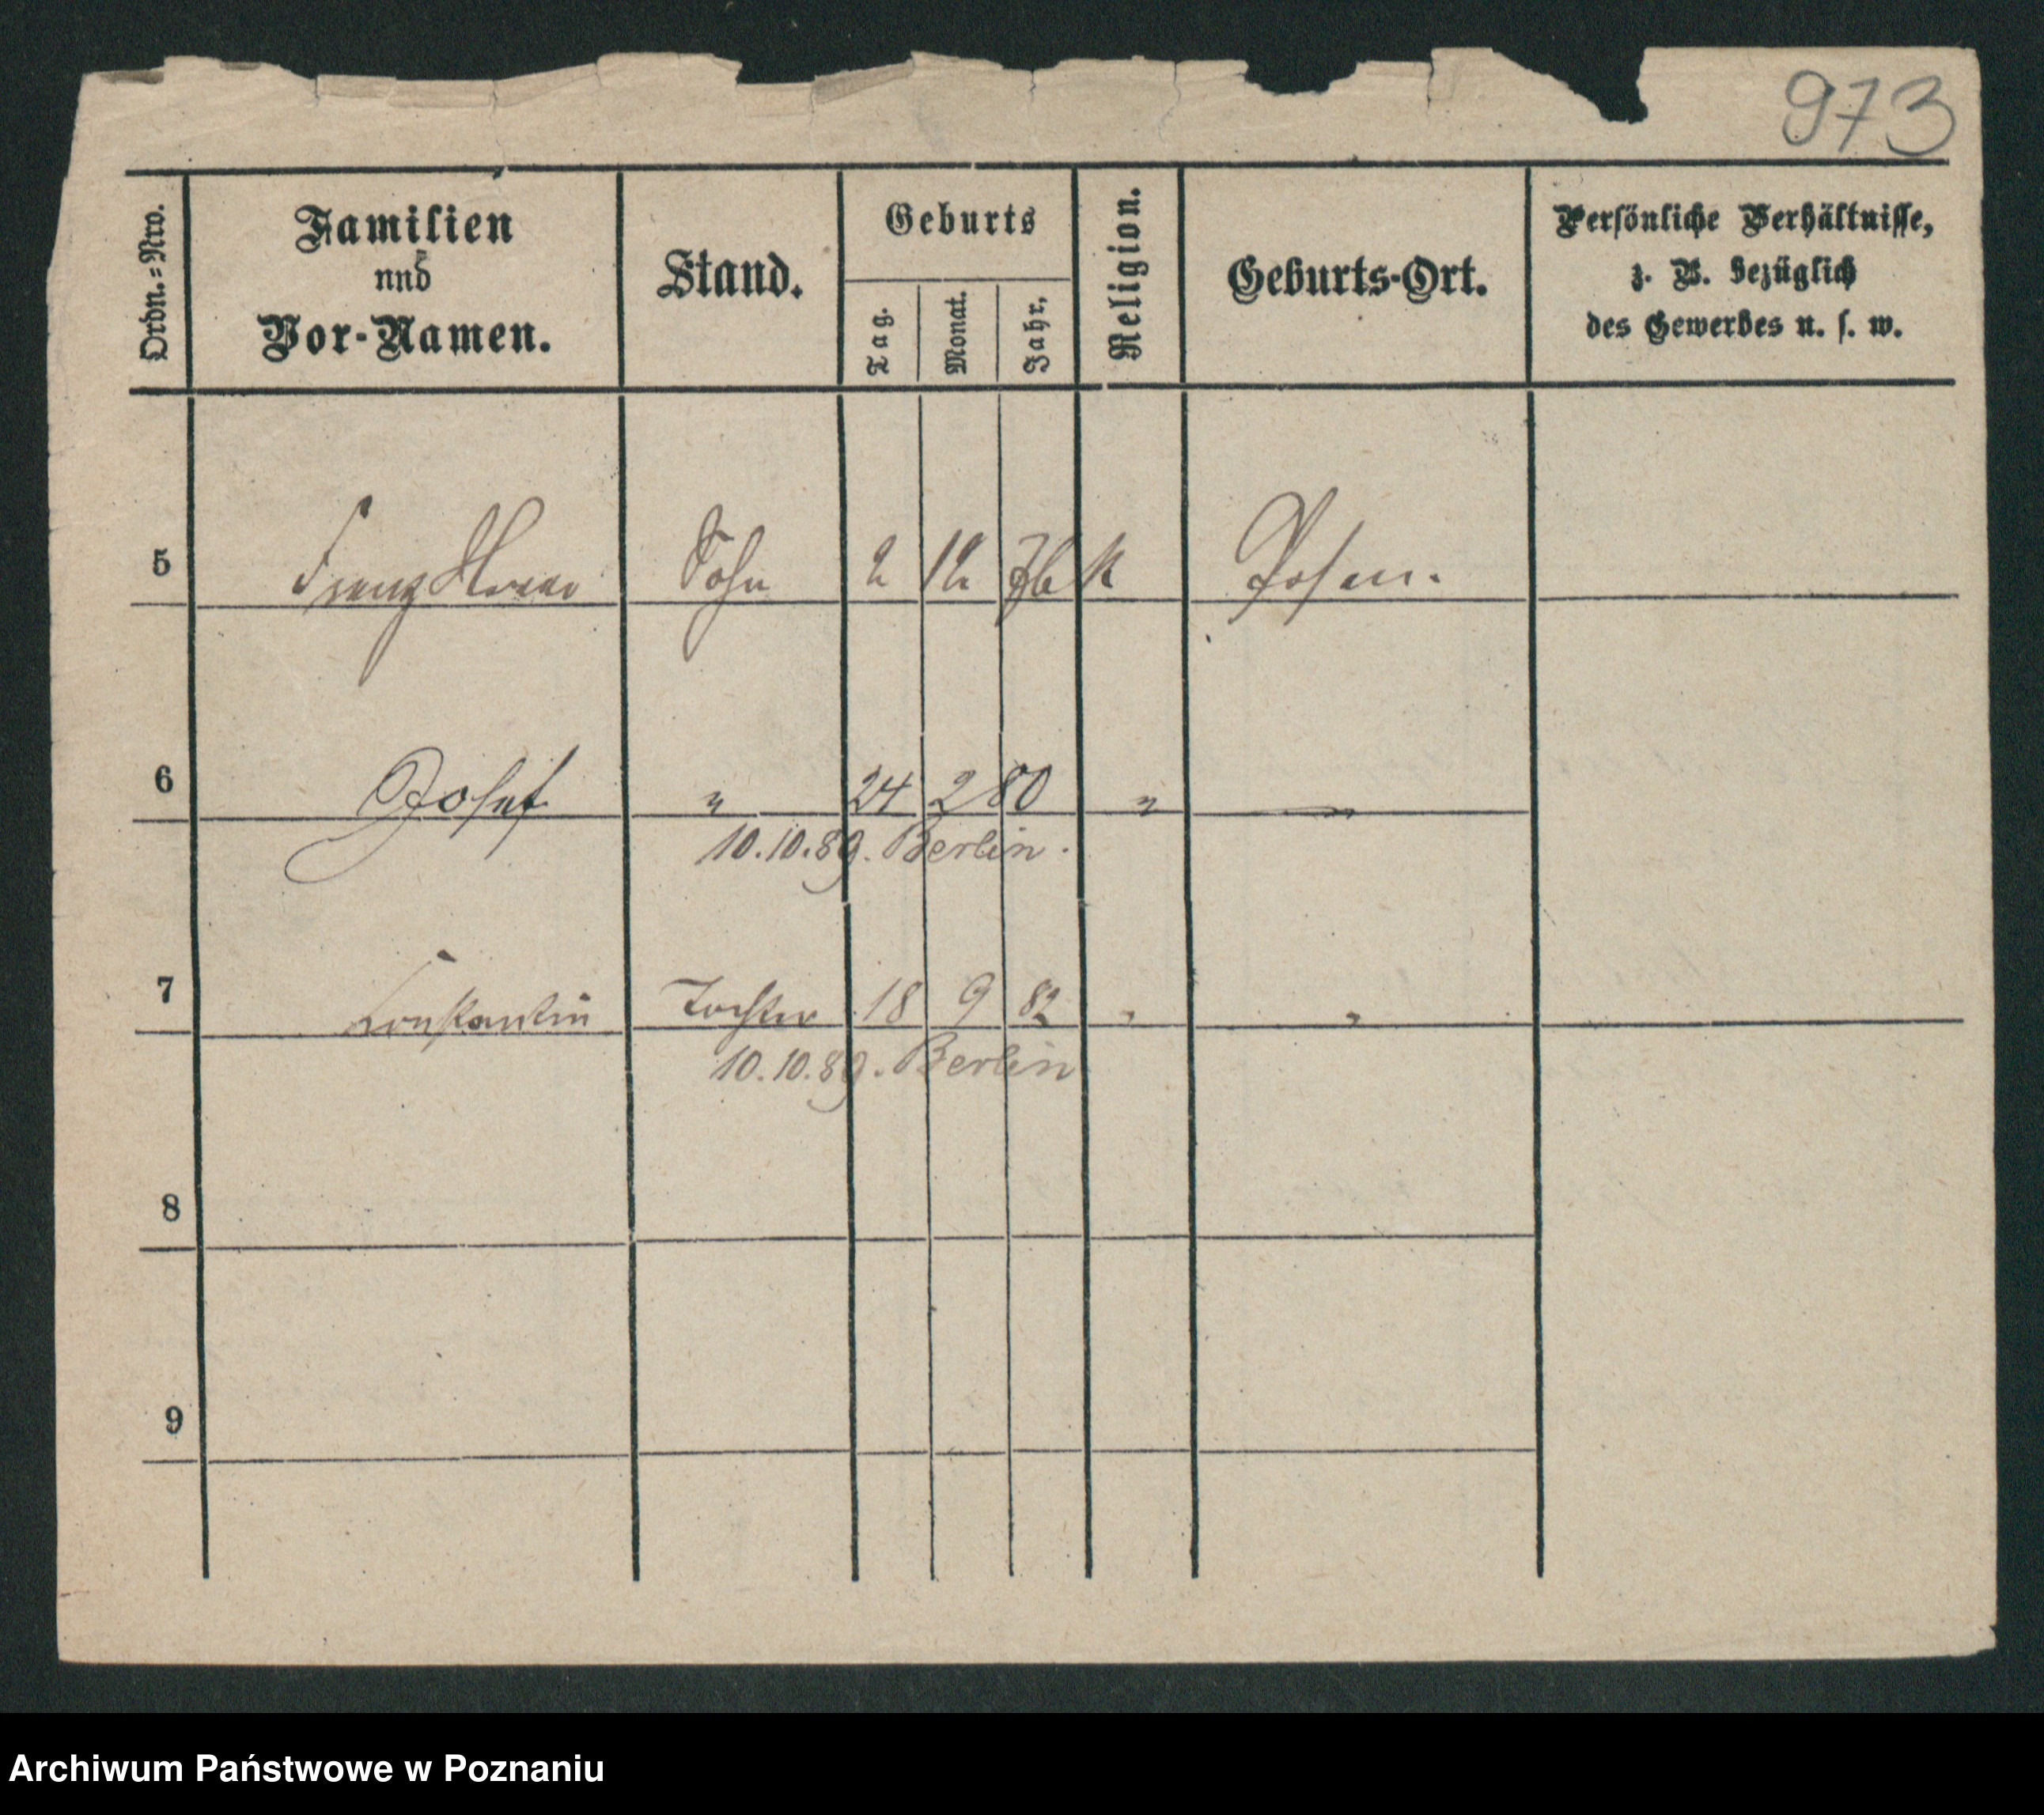 973
Ordn.=Nro.
Familien
und
Vor-Namen.
Stand.
Geburts
Tag.
Monat.
Jahr.
Religion.
Geburts-Ort.
Persönliche Verhältnisse,
z. B. bezüglich
des Gewerbes u. s. w.
5 Franz Sohn 2 12 76 k Posen.
6 Josef " 24 2 80 " "
10.10.89. Berlin.
7 Konstantin Tochter 18 9 82 " "
10.10.89. Berlin
8
9
Archiwum Państwowe w Poznaniu